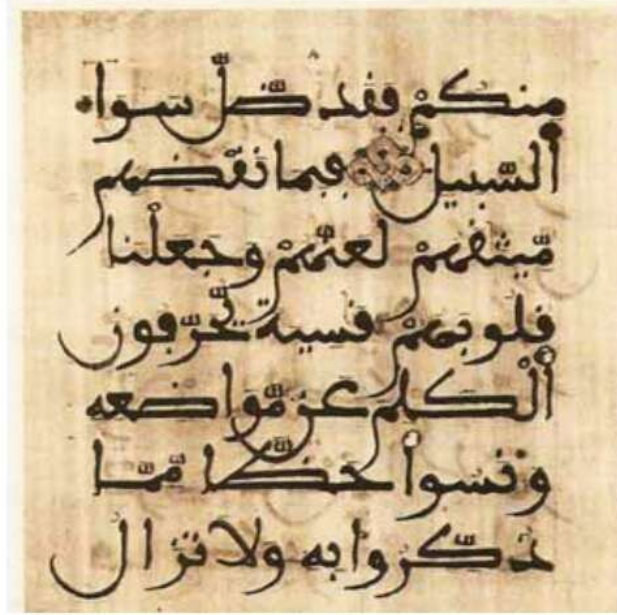 مِنكُمْ فَقَد ضَّلَّ سَوَآءَ
اَ۬لسَّبِيلِ فَبِمَا نَقْضِهِم
مِّيثَٰقَهُمْ لَعَنَّٰهُمْ وَجَعَلْنَا
قُلُوبَهُمْ قَٰسِيَةً يُحَرِّفُونَ
اَ۬لْكَلِمَ عَن مَّوَاضِعِهِ
وَنَسُواْ حَظّاً مِّمَّا
ذُكِّرُواْ بِهِ وَلَا تَزَالُ